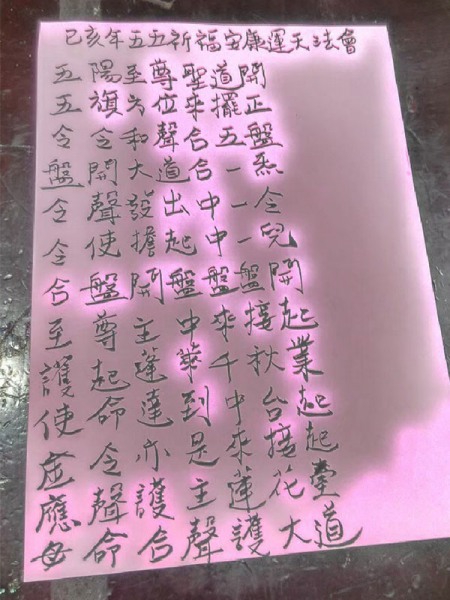 己亥年五五祈福安康運天法會
五陽至尊聖道開
五旗六位來擺正
令令和聲合五盤
盤開大道合一炁
令聲發出中一令
令使擔起中一兒
合盤開盤盤盤開
至尊主中來接起
護起蓬華千秋業
使命達到中台起
虛令亦是來接起
應聲護主蓮花臺
母命合聲護大道